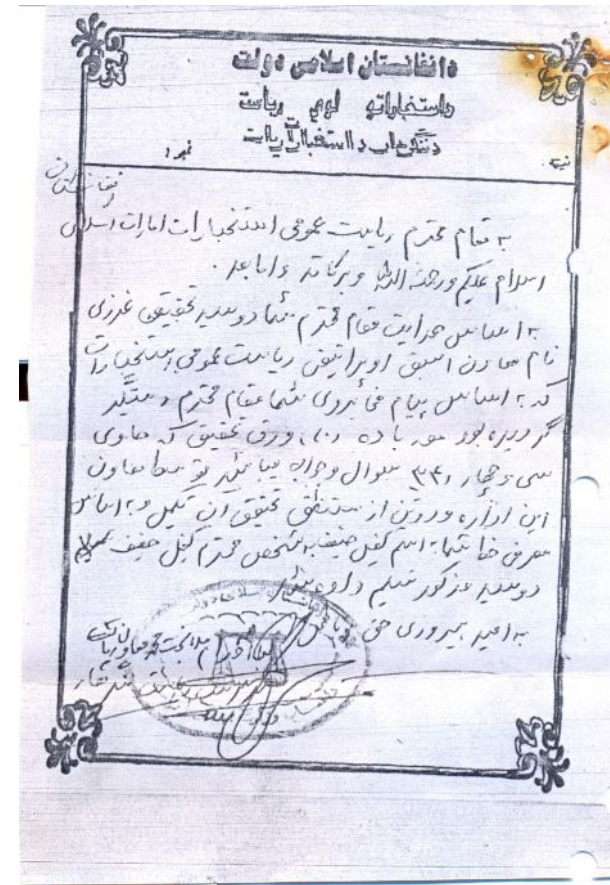 دافغانستان اسلامي دولت
داستخباراتو لوي ریاست
دکندهار داستخباراتو ریاست
نمبر /
نیټه
افغانستان
به مقام محترم ریاست عمومی استخبارات امارات اسلامی
اسلام علیکم ورحمت الله وبرکاته واما بعد
به اساس هدایت مقام محترم شما دوسیه تحقیقی غرزی
نام معاون اسبق اوپراتیفی ریاست عمومی استخبارات
که به اساس پیام مخابروی شما مقام محترم دستگیر
گردیده بود مورد باده (۱۰) ورق تحقیق که حاوی
سی و چهار (۳۴) سوال وجواب میباشد توسط معاون
این اداره و دوتن از مستنطق تحقیق آن تکمیل و به اساس
معرفی خط شما به اسم کفیل حنیف به شخص محترم کفیل حنیف
دوسیه مذکور تسلیم داده شد
به امید پیروزی حق